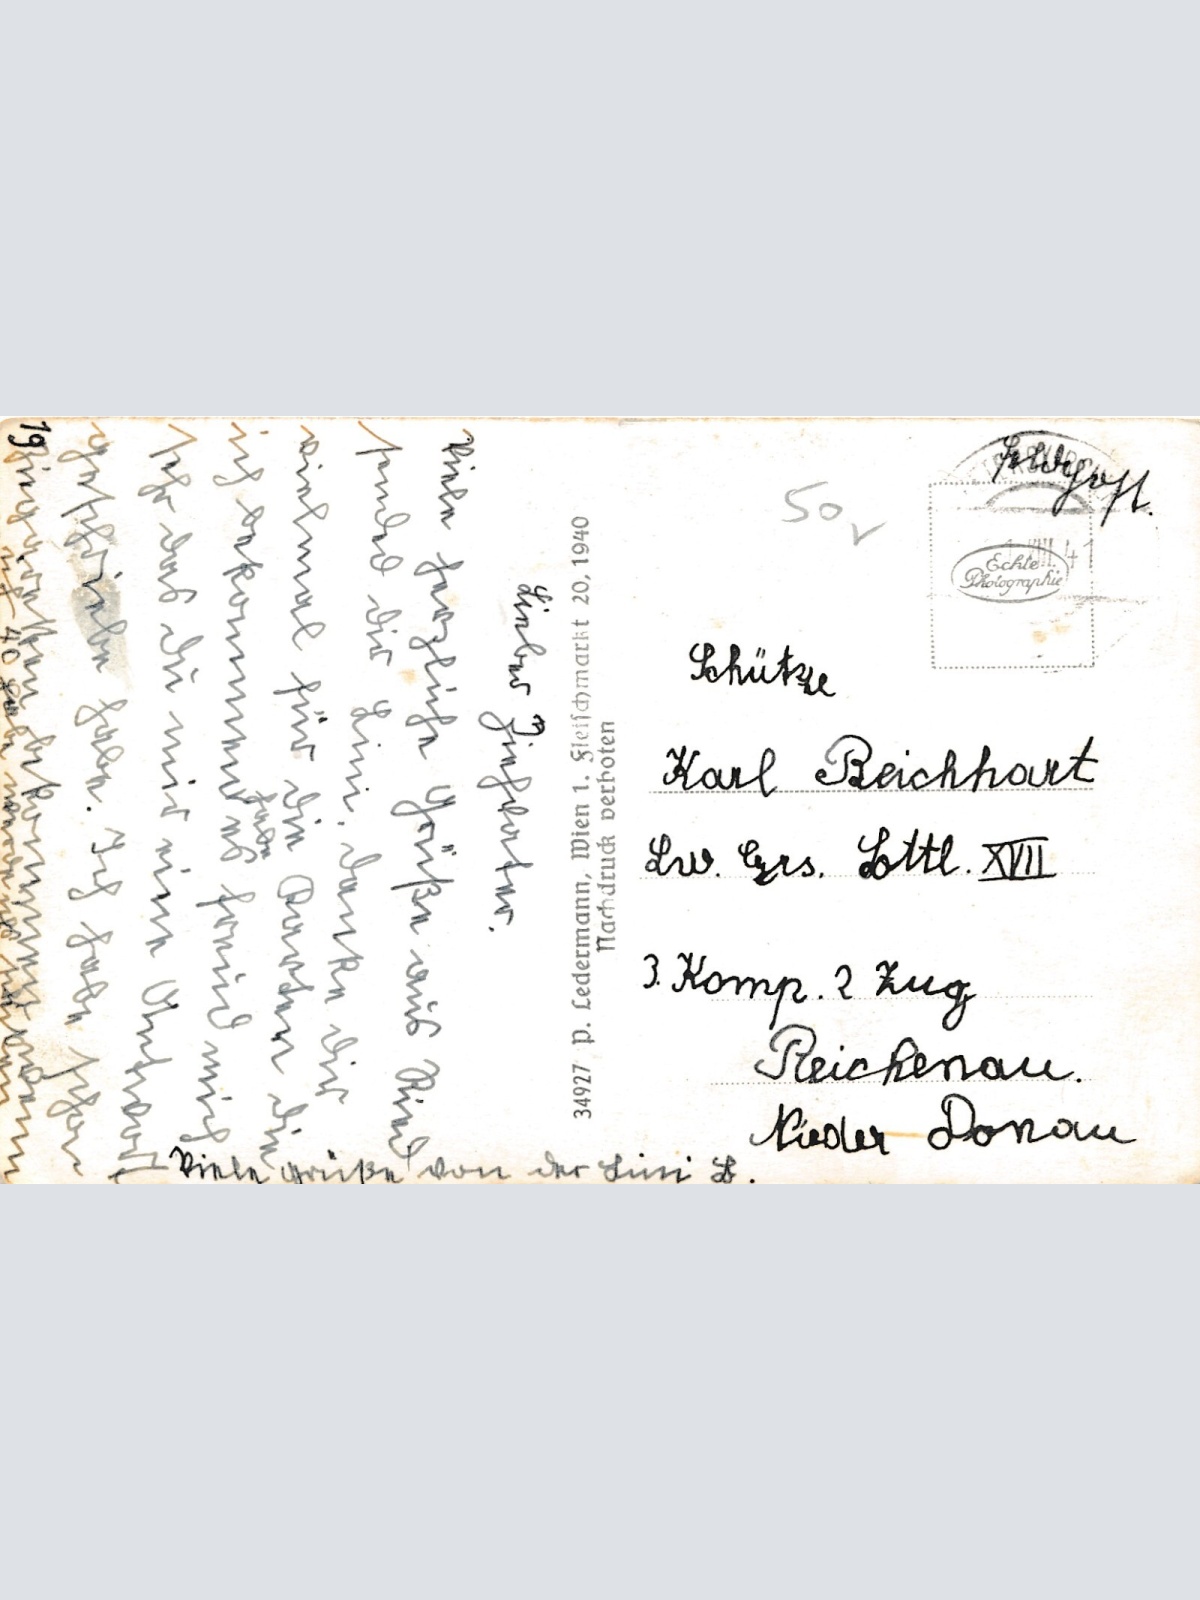 Feldpost.
Echte
Photographie
50
Schütze
Karl Reichhart
Lw. Grs. Bttl. XVII
3. Komp. 2 Zug
Reichenau.
Nieder Donau
34927 P. Ledermann, Wien 1. Fleischmarkt 20, 1940
Nachdruck verboten
Lieber Ziehvater.
Viele herzliche Grüße aus
sendet dir Lini. danke dir
vielmal für die Karten die
ich bekommen habe
das du mir eine
geschrieben habe. Ich habe schon
19 bekommen
40
Viele grüße von der Lini B.